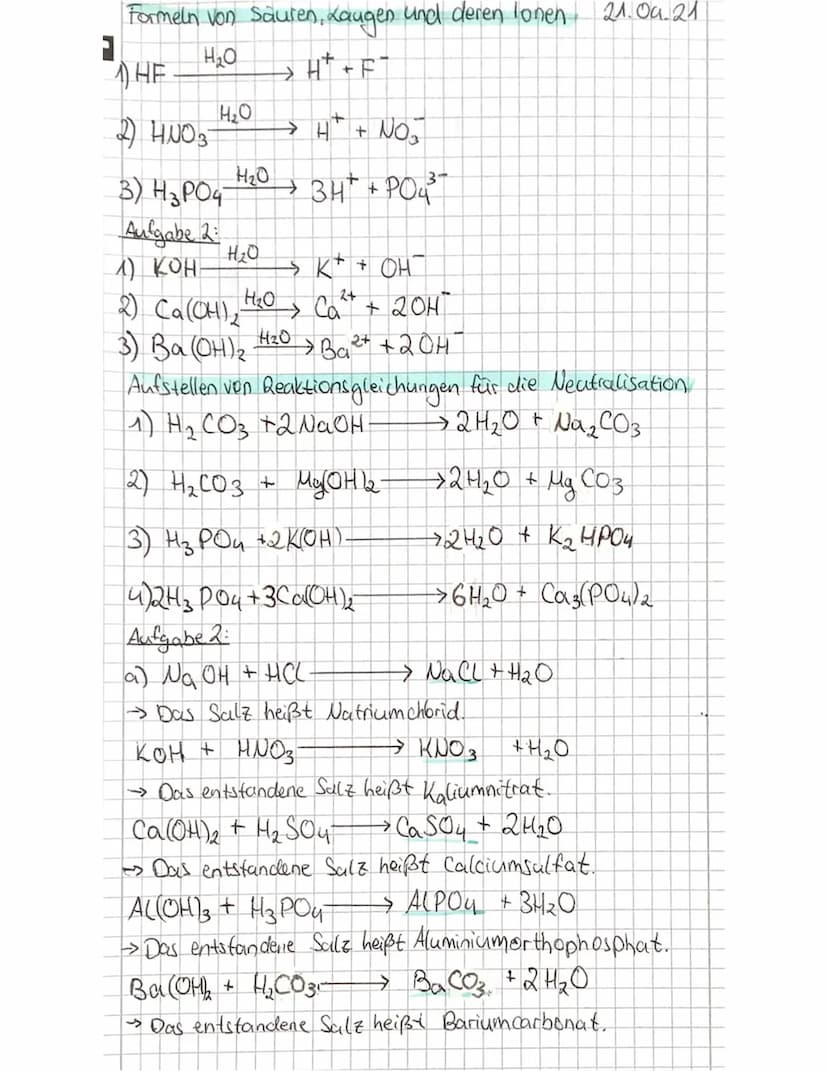 Formeln von Säuren, Laugen und deren Ionen 21.04.21
1) HF —H₂O→ H⁺ + F⁻
2) HNO₃ —H₂O→ H⁺ + NO₃⁻
3) H₃PO₄ —H₂O→ 3H⁺ + PO₄³⁻
Aufgabe 2:
1) KOH —H₂O→ K⁺ + OH⁻
2) Ca(OH)₂ —H₂O→ Ca²⁺ + 2OH⁻
3) Ba(OH)₂ —H₂O→ Ba²⁺ + 2OH⁻
Aufstellen von Reaktionsgleichungen für die Neutralisation
1) H₂CO₃ + 2NaOH → 2H₂O + Na₂CO₃
2) H₂CO₃ + Mg(OH)₂ → 2H₂O + MgCO₃
3) H₃PO₄ + 2K(OH) → 2H₂O + K₂HPO₄
4) 2H₃PO₄ + 3Ca(OH)₂ → 6H₂O + Ca₃(PO₄)₂
Aufgabe 2:
a) NaOH + HCl → NaCl + H₂O
→ Das Salz heißt Natriumchlorid.
KOH + HNO₃ → KNO₃ + H₂O
→ Das entstandene Salz heißt Kaliumnitrat.
Ca(OH)₂ + H₂SO₄ → CaSO₄ + 2H₂O
→ Das entstandene Salz heißt Calciumsulfat.
Al(OH)₃ + H₃PO₄ → AlPO₄ + 3H₂O
→ Das entstandene Salz heißt Aluminiumorthophosphat.
Ba(OH)₂ + H₂CO₃ → BaCO₃ + 2H₂O
→ Das entstandene Salz heißt Bariumcarbonat.